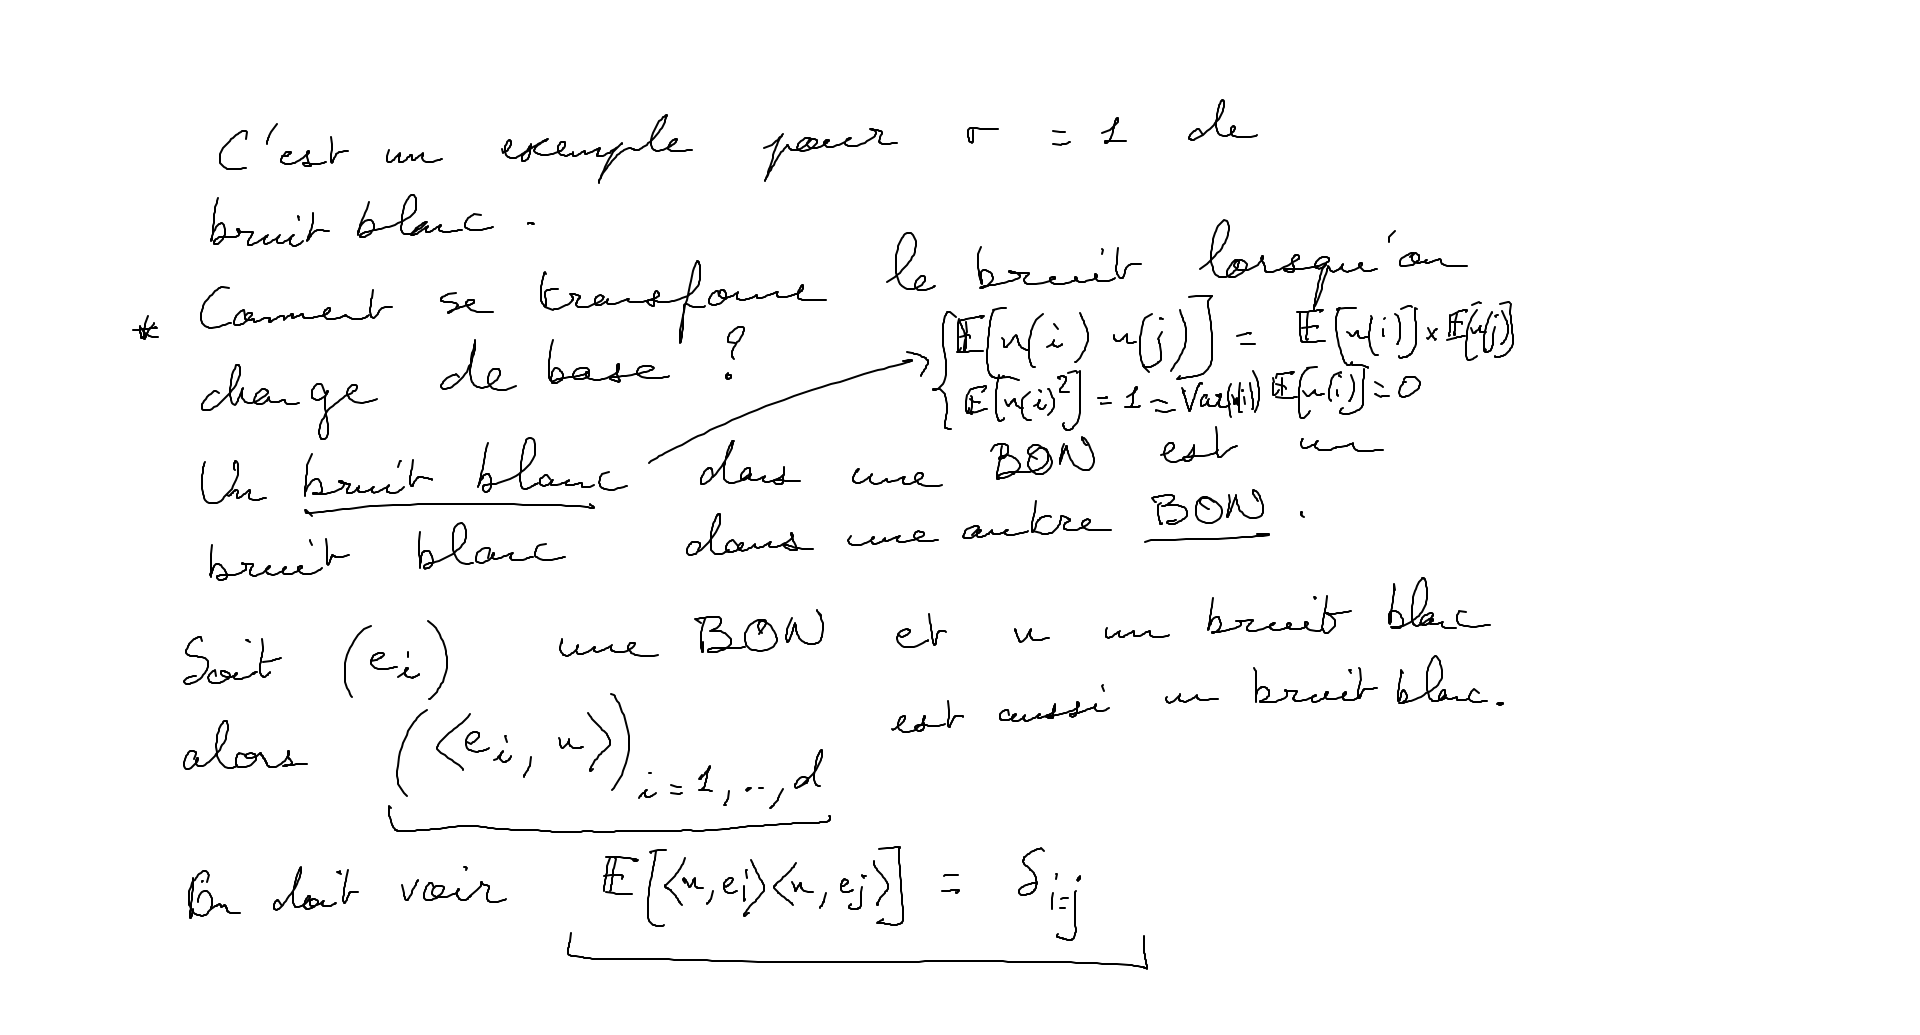 C'est un exemple pour σ = 1 de
bruit blanc.
* Comment se transforme le bruit lorsqu'on
change de base ?
E[n(i) n(j)] = E[n(i)] × E[n(j)]
E[n(i)²] = 1 = Var(n(i)) E[n(i)] = 0
Un bruit blanc dans une BON est un
bruit blanc dans une autre BON.
Soit (e_i) une BON et n un bruit blanc
alors (⟨e_i, n⟩)_{i=1,..,d} est aussi un bruit blanc.
On doit voir E[⟨n, e_i⟩⟨n, e_j⟩] = δ_{i=j}